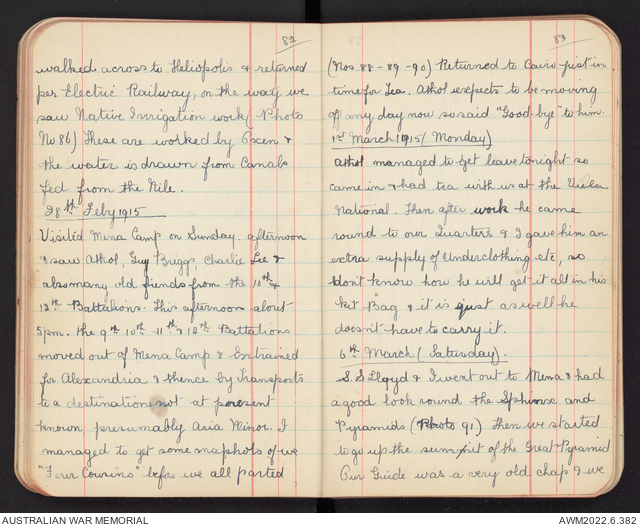 82
walked across to Heliopolis & returned
per Electric Railway, on the way we
saw Native Irrigation work (Photo
No 86) These are worked by Oxen &
the water is drawn from Canals
fed from the Nile.
28th Feby 1915
Visited Mena Camp on Sunday afternoon
& saw Athol, Guy Briggs, Charlie Lee &
also many old friends from the 10th &
12th Battalions. This afternoon about
5pm. the 9th 10th 11th & 12th Battalions
moved out of Mena Camp & Entrained
for Alexandria & thence by Transports
to a destination not at present
known presumably Asia Minor. I
managed to get some snapshots of we
"Four Cousins" before we all parted
83
(Nos 88-89-90) Returned to Cairo just in
time for Tea. Athol expects to be moving
off any day now so said "Good bye" to him.
1st March 1915 (Monday)
Athol managed to get leave tonight so
came in & had tea with us at the
National. Then after work he came
round to our Quarters & I gave him an
extra supply of Underclothing etc, so
dont know how he will get it all in his
Kit Bag & it is just as well he
doesn't have to carry it.
6th March (Saturday).
S.S Lloyd & I went out to Mena & had
a good look round the Sphinx and
Pyramids (Photo 91) Then we started
to go up the summit of the Great Pyramid
Our Guide was a very old chap & we
AUSTRALIAN WAR MEMORIAL
AWM2022.6.382